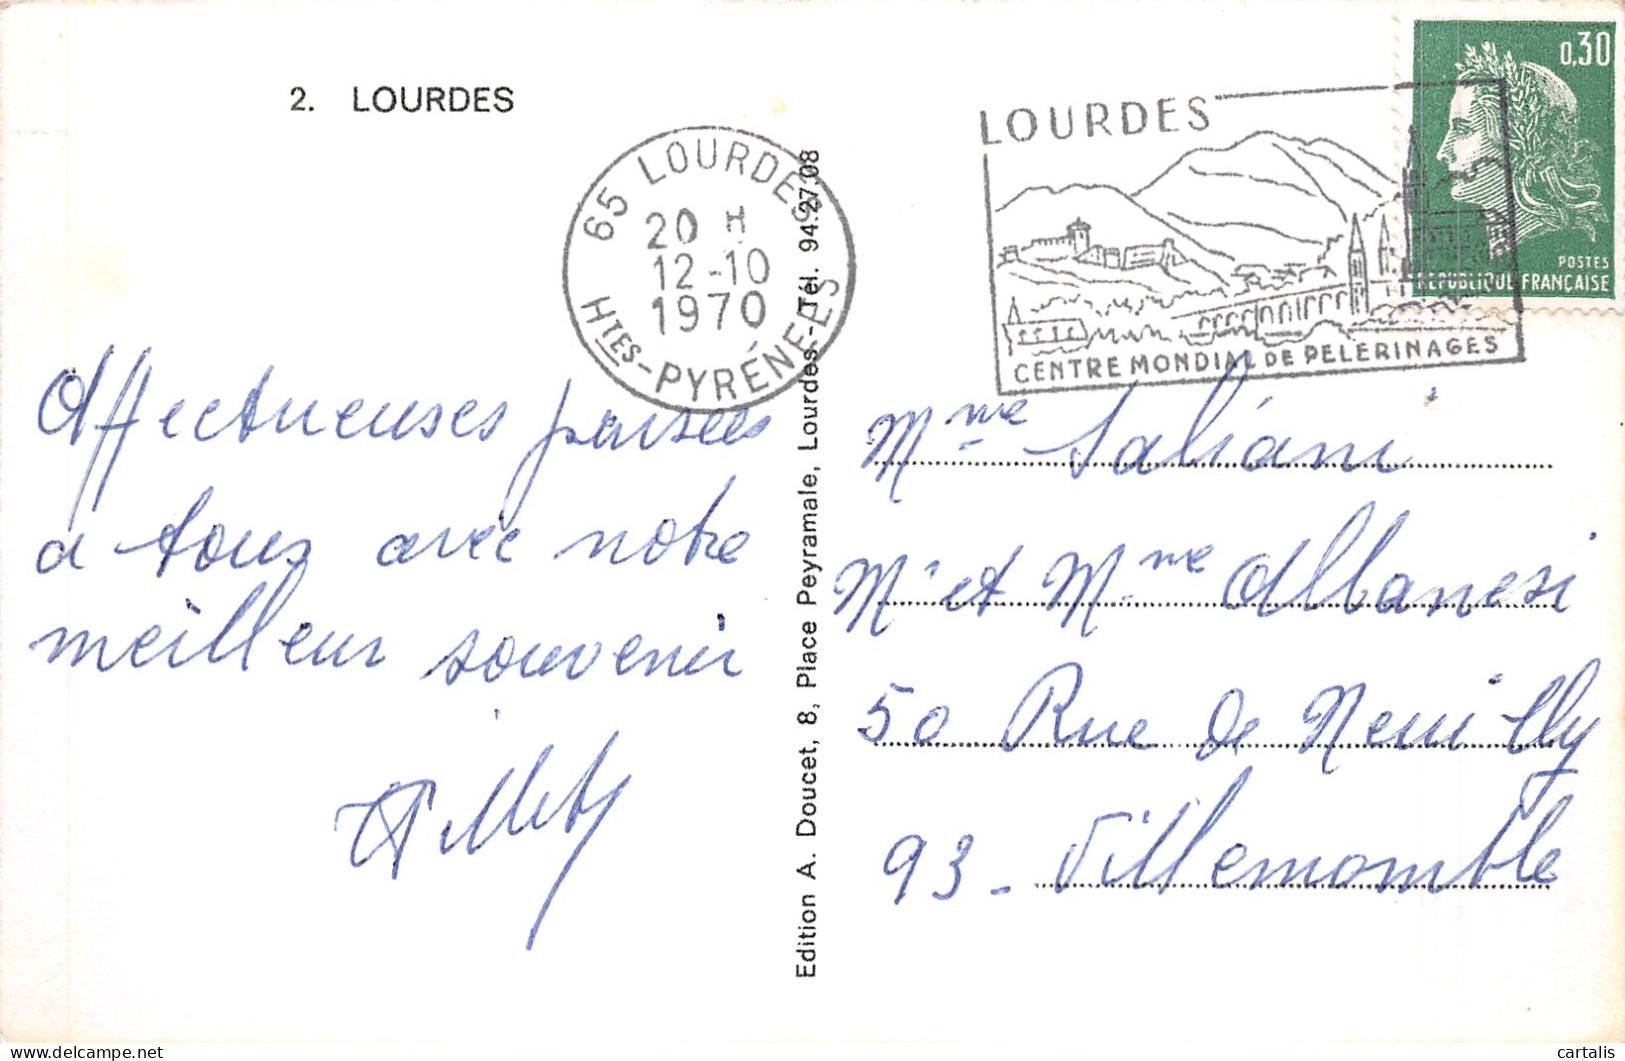 2. LOURDES
65 LOURDES
20 H
12-10
1970
HTES-PYRÉNÉES
LOURDES
CENTRE MONDIAL DE PELERINAGES
0,30
POSTES
REPUBLIQUE FRANÇAISE
Affectueuses pensées
a tous avec notre
meilleur souvenir
Edition A. Doucet, 8, Place Peyramale, Lourdes-Tél. 94.27.08
Mme Saliani
Mr et Mme Albanesi
50 Rue de Neuilly
93 - Villemomble
cartalis